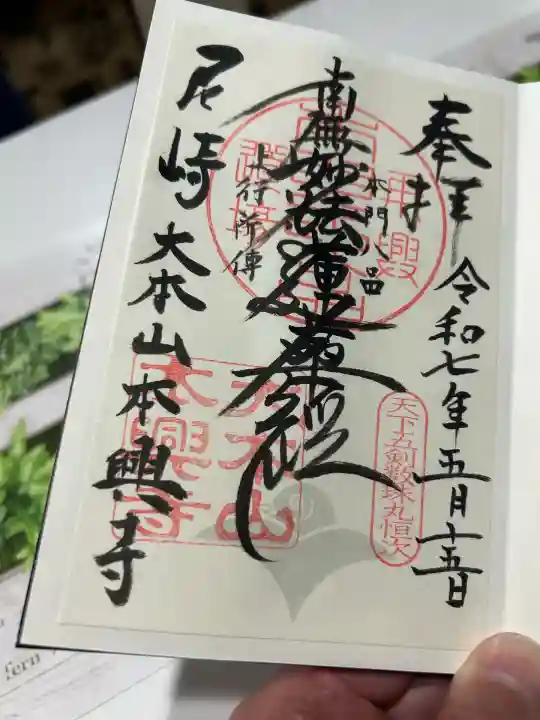 奉拝
令和七年五月十五日
天下五剣数珠丸恒次
本門八品
南無妙法蓮華経
上行所傳
尼崎 大本山 本興寺
大本山
本興寺
fern